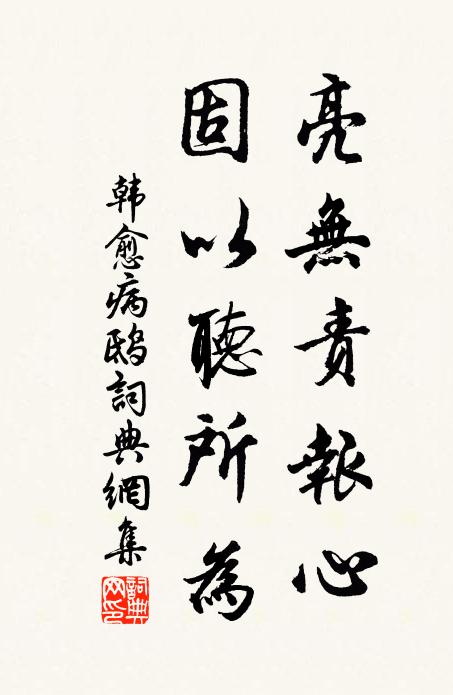 亮無責報心
固以聽所為
韓愈病鴟詞典網集
詞典網印